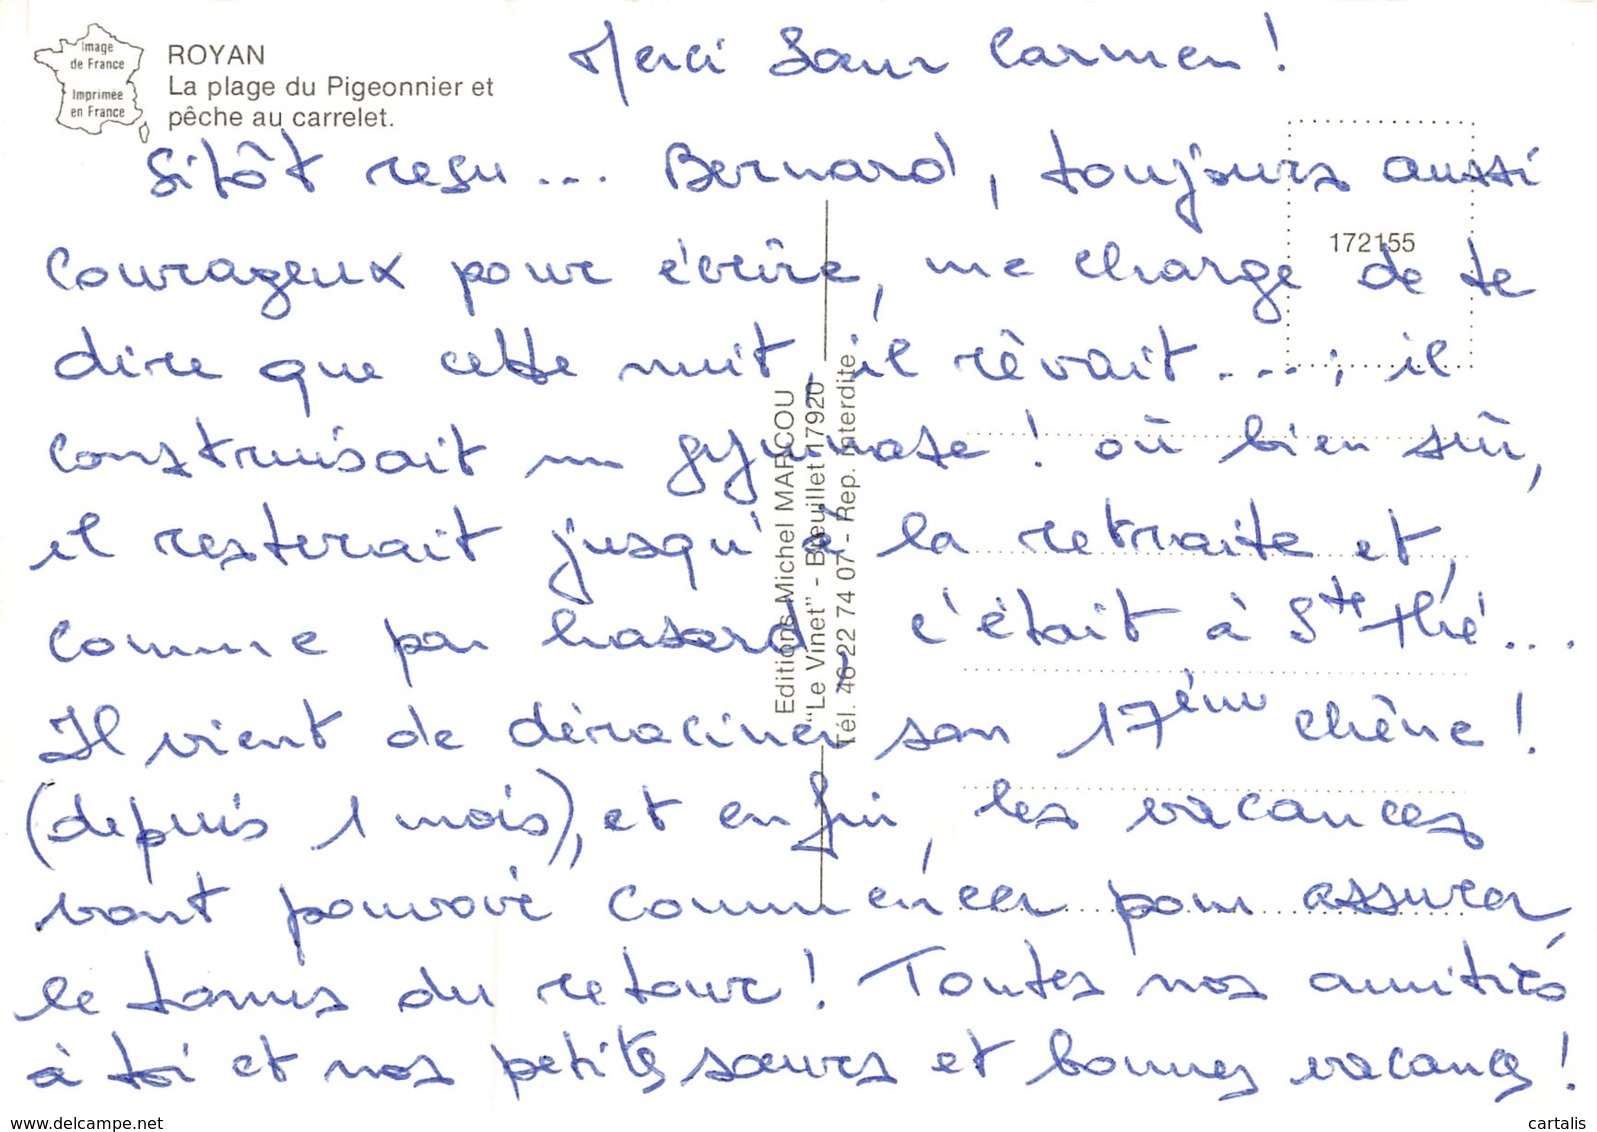 Image
de France
Imprimée
en France
ROYAN
La plage du Pigeonnier et
pêche au carrelet.
Merci Sœur Carmen !
Sitôt reçu ... Bernard, toujours aussi
172155
courageux pour écrire, me charge de te
dire que cette nuit, il rêvait ... ; il
construisait un gymnase ! où bien sûr,
il resterait jusqu'à la retraite et,
comme par hasard, c'était à Ste Thé...
Il vient de déraciner son 17ème chêne !
(depuis 1 mois), et enfin, les vacances
vont pouvoir commencer pour assurer,
le tonus du retour ! Toutes nos amitiés
à toi et nos petites sœurs et bonnes vacances !
Editions Michel MARCOU
"Le Vinet" - Breuillet 17920
Tél. 46 22 74 07 - Rep. Interdite
www.delcampe.net
cartalis